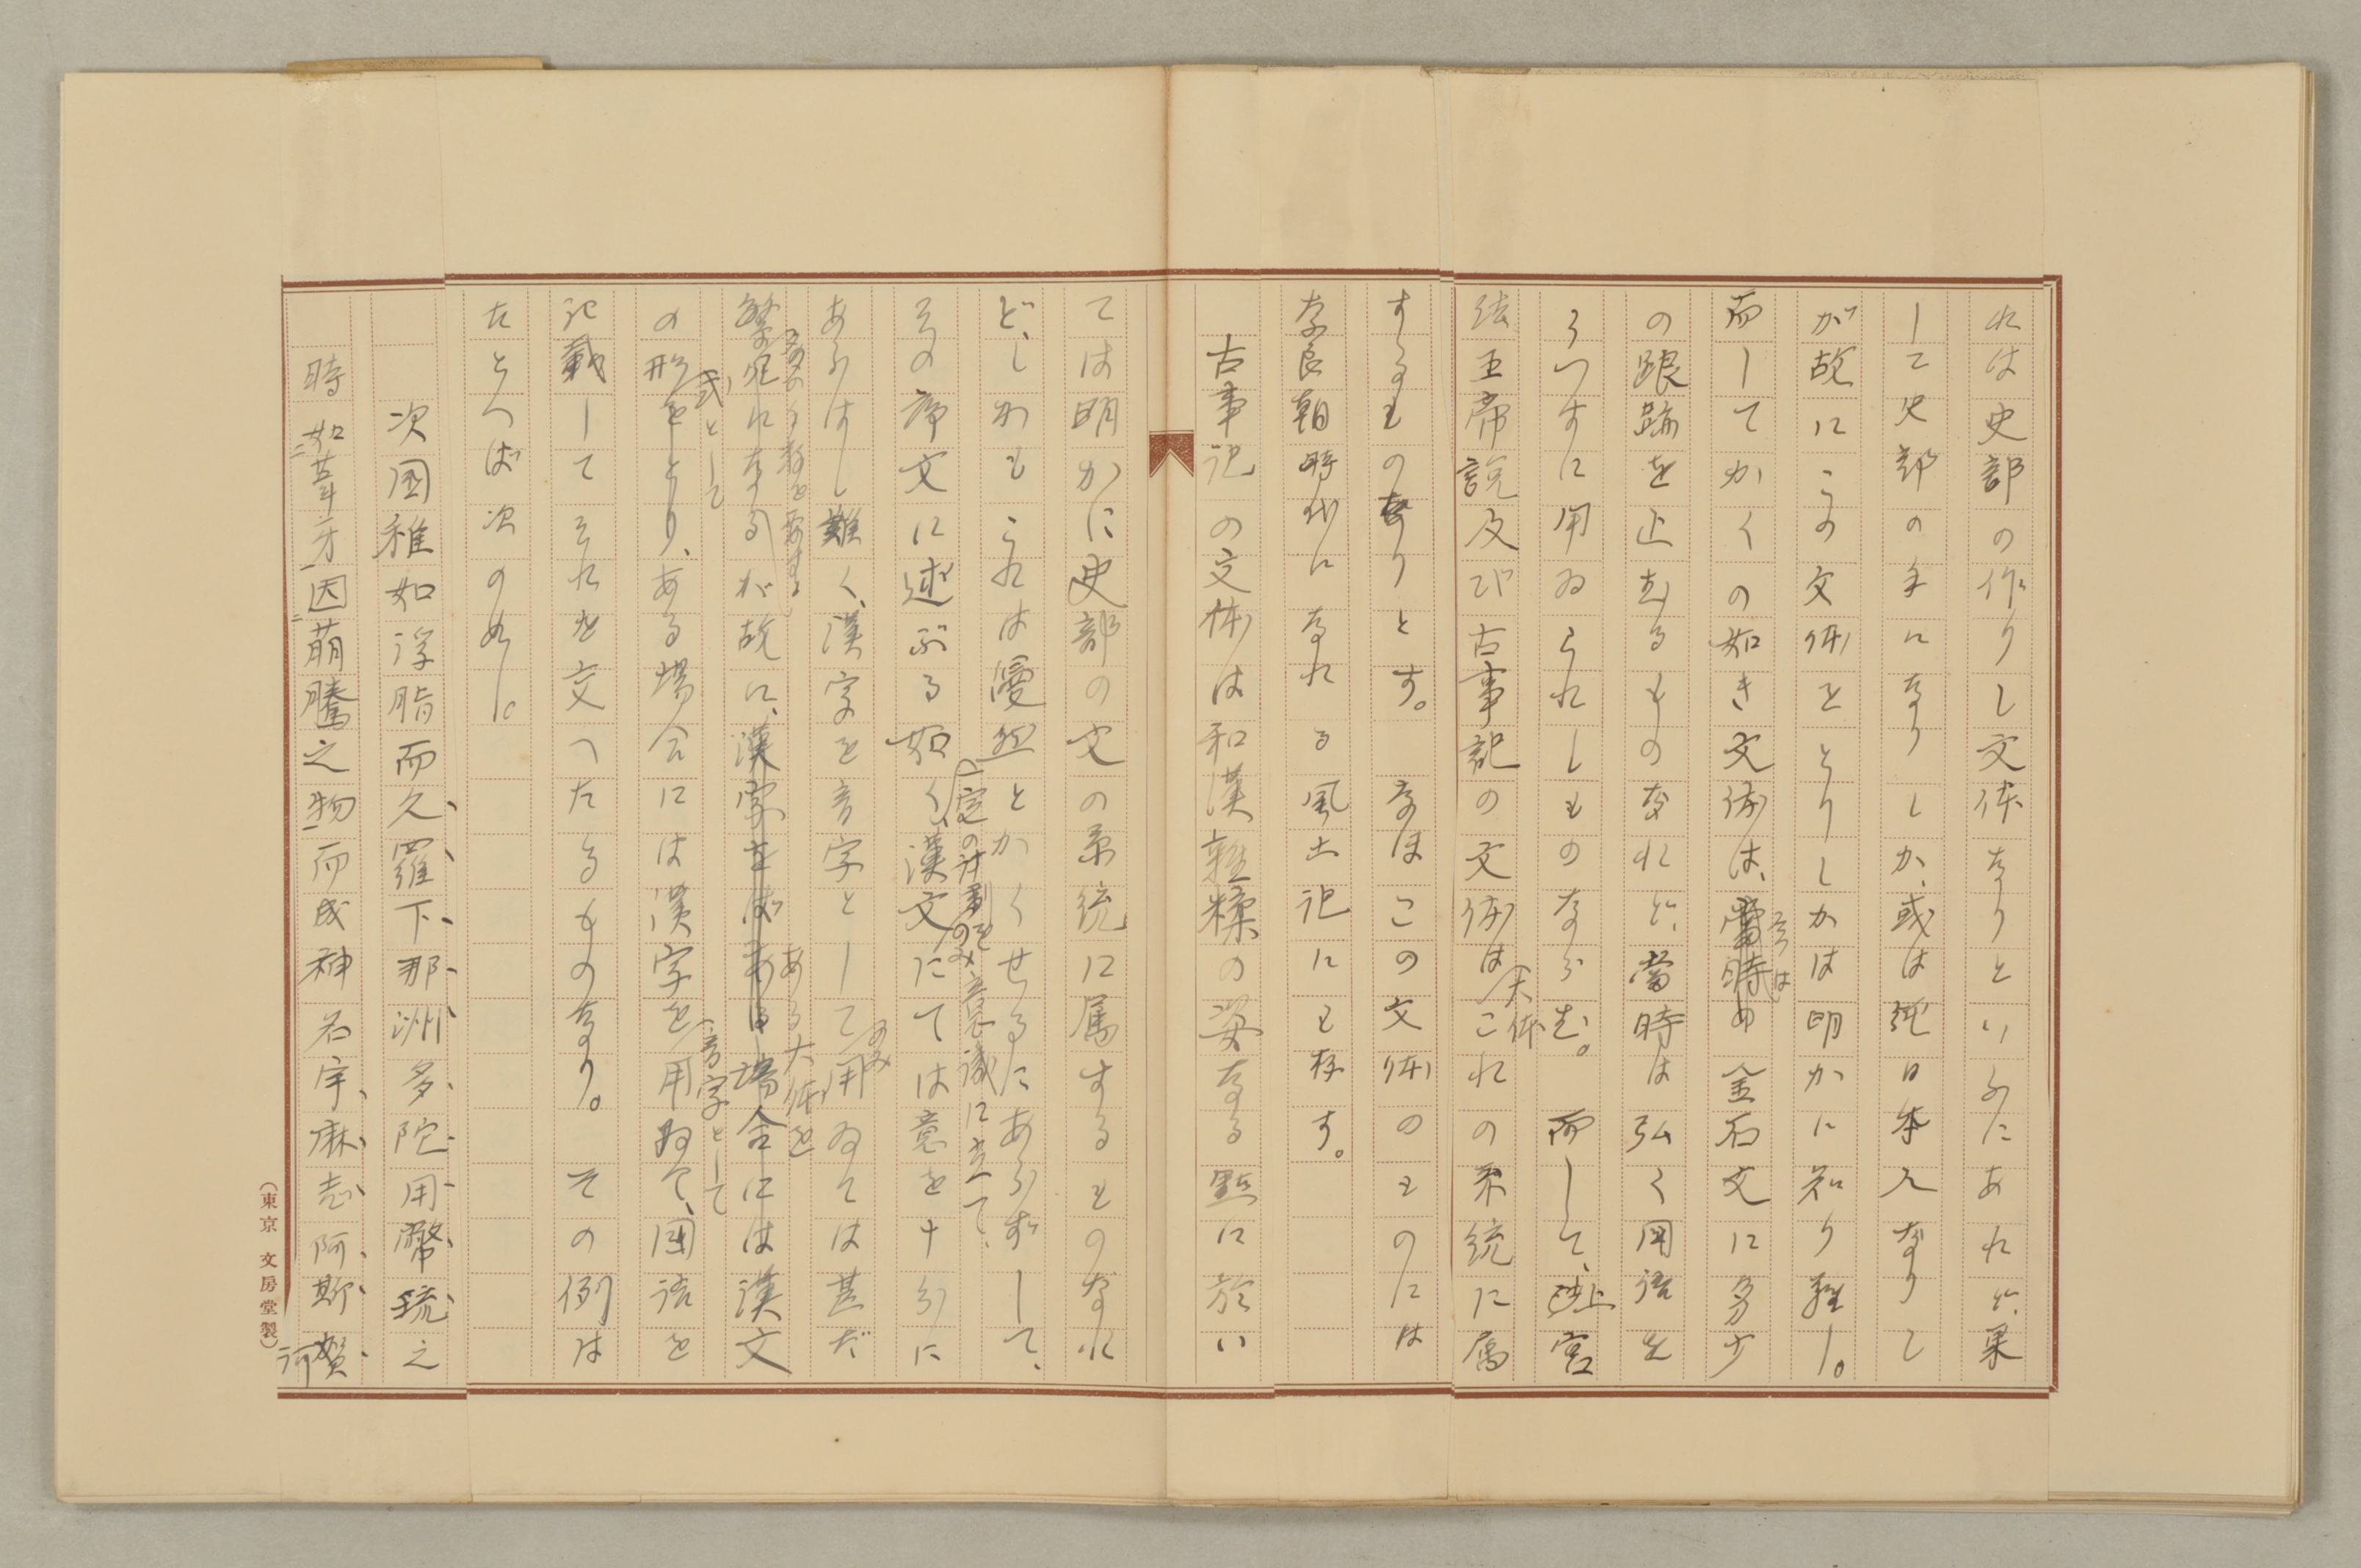 れは史部の作りし文体なりといふにあれど、果
して史部の手になりしか、或は純日本人なりし
が故にこの文体をとりしかは明かに知り難し。
而してかくの如き文体は、そは金石文に多少
の踉跡を止むるものなれど、當時は弘く国語を
うつすに用ゐられしものならむ。而して、上宮
法王帝説及び古事記の文体は大体これの系統に属
するものなりとす。なほこの文体のものには
奈良朝時代になれる風土記にも存す。
古事記の文体は和漢雑糅の姿なる點に於い
ては明かに史部の文の系統に属するものなれ
ど、しかもこれは漫然とかくせるにあらずして、
一定の計劃を意識に立てて、
その序文に述ぶる如く、漢文にては意を十分に
あらはし難く、漢字を音字としてのみ用ゐては甚だ
繁冗になるが故に、ある大体を場合には漢文
の形式としてとり、ある場合には漢字を音字として用ゐて、国語を
記載してそれを交へたるものなり。その例は
たとへば次の如し。
次國稚如浮脂而久羅下那洲多陀用幣琉之
時如葦牙因萠騰之物而成神名宇麻志阿斯訶
(東京 文房堂製)